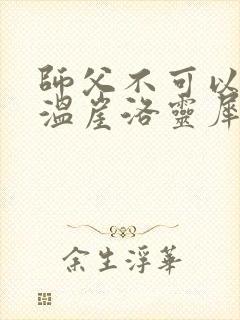 師父不可以
溫崖洛靈犀
余生浮華